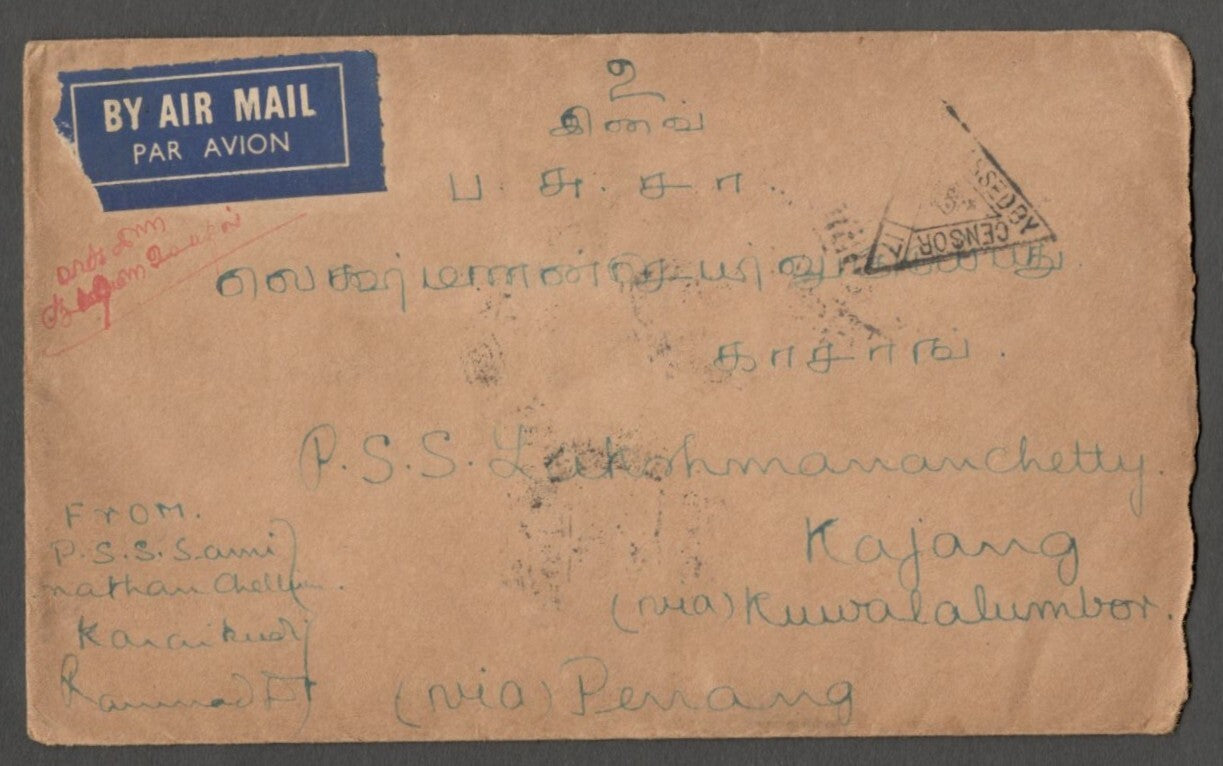 BY AIR MAIL
PAR AVION
உ
சிவ
ப. சு. சா.
காசாங்.
PASSED BY
CENSOR
P.S.S. Lakshmananchetty.
Kajang
(via) Kuwalalumbor.
(via) Penang
FROM.
P.S.S. Sami
nathan
Karaikudi
Ramnad Dt